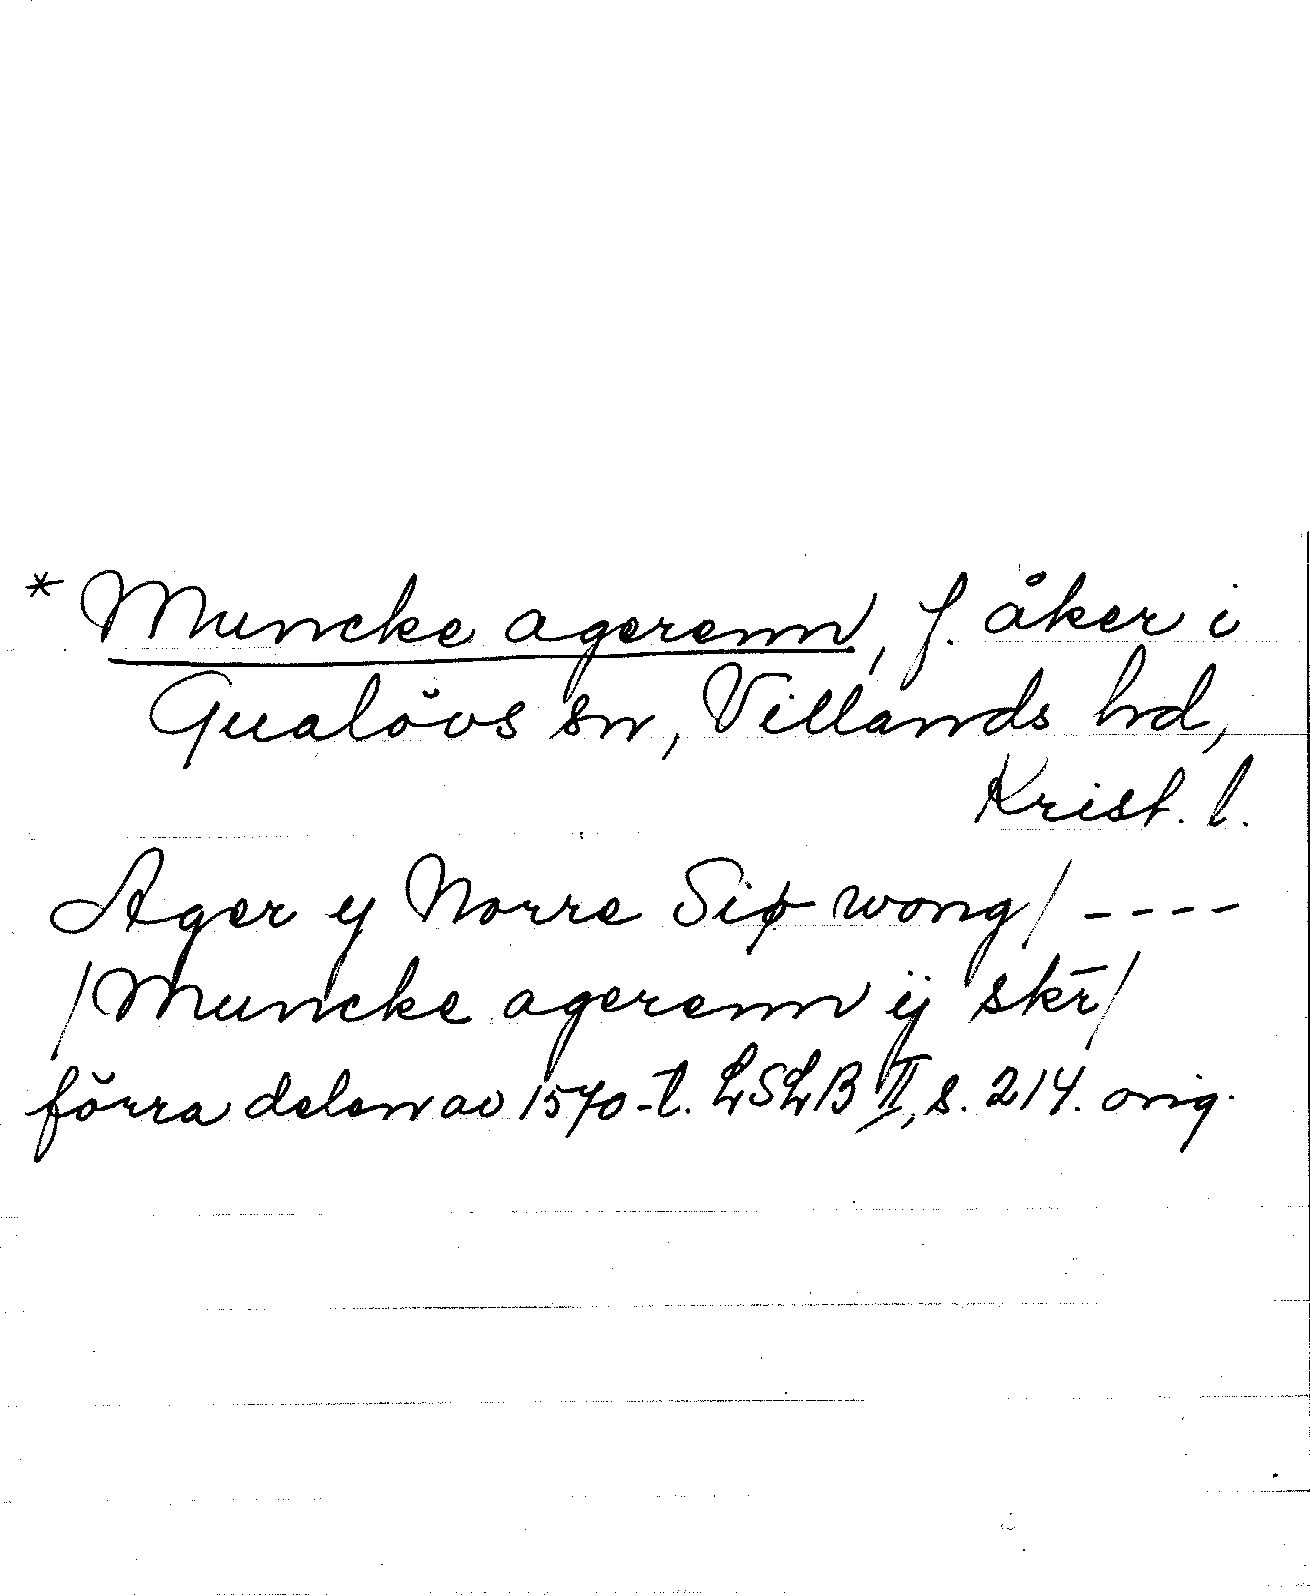 * Muncke agerenn, f. åker i
Gualövs sn, Villands hd,
Krist. l.
Ager y Norre Siø wong/ ----
/Muncke agerenn ij skr̄/
förra delen av 1570-t. LSLB II, s. 214. orig.